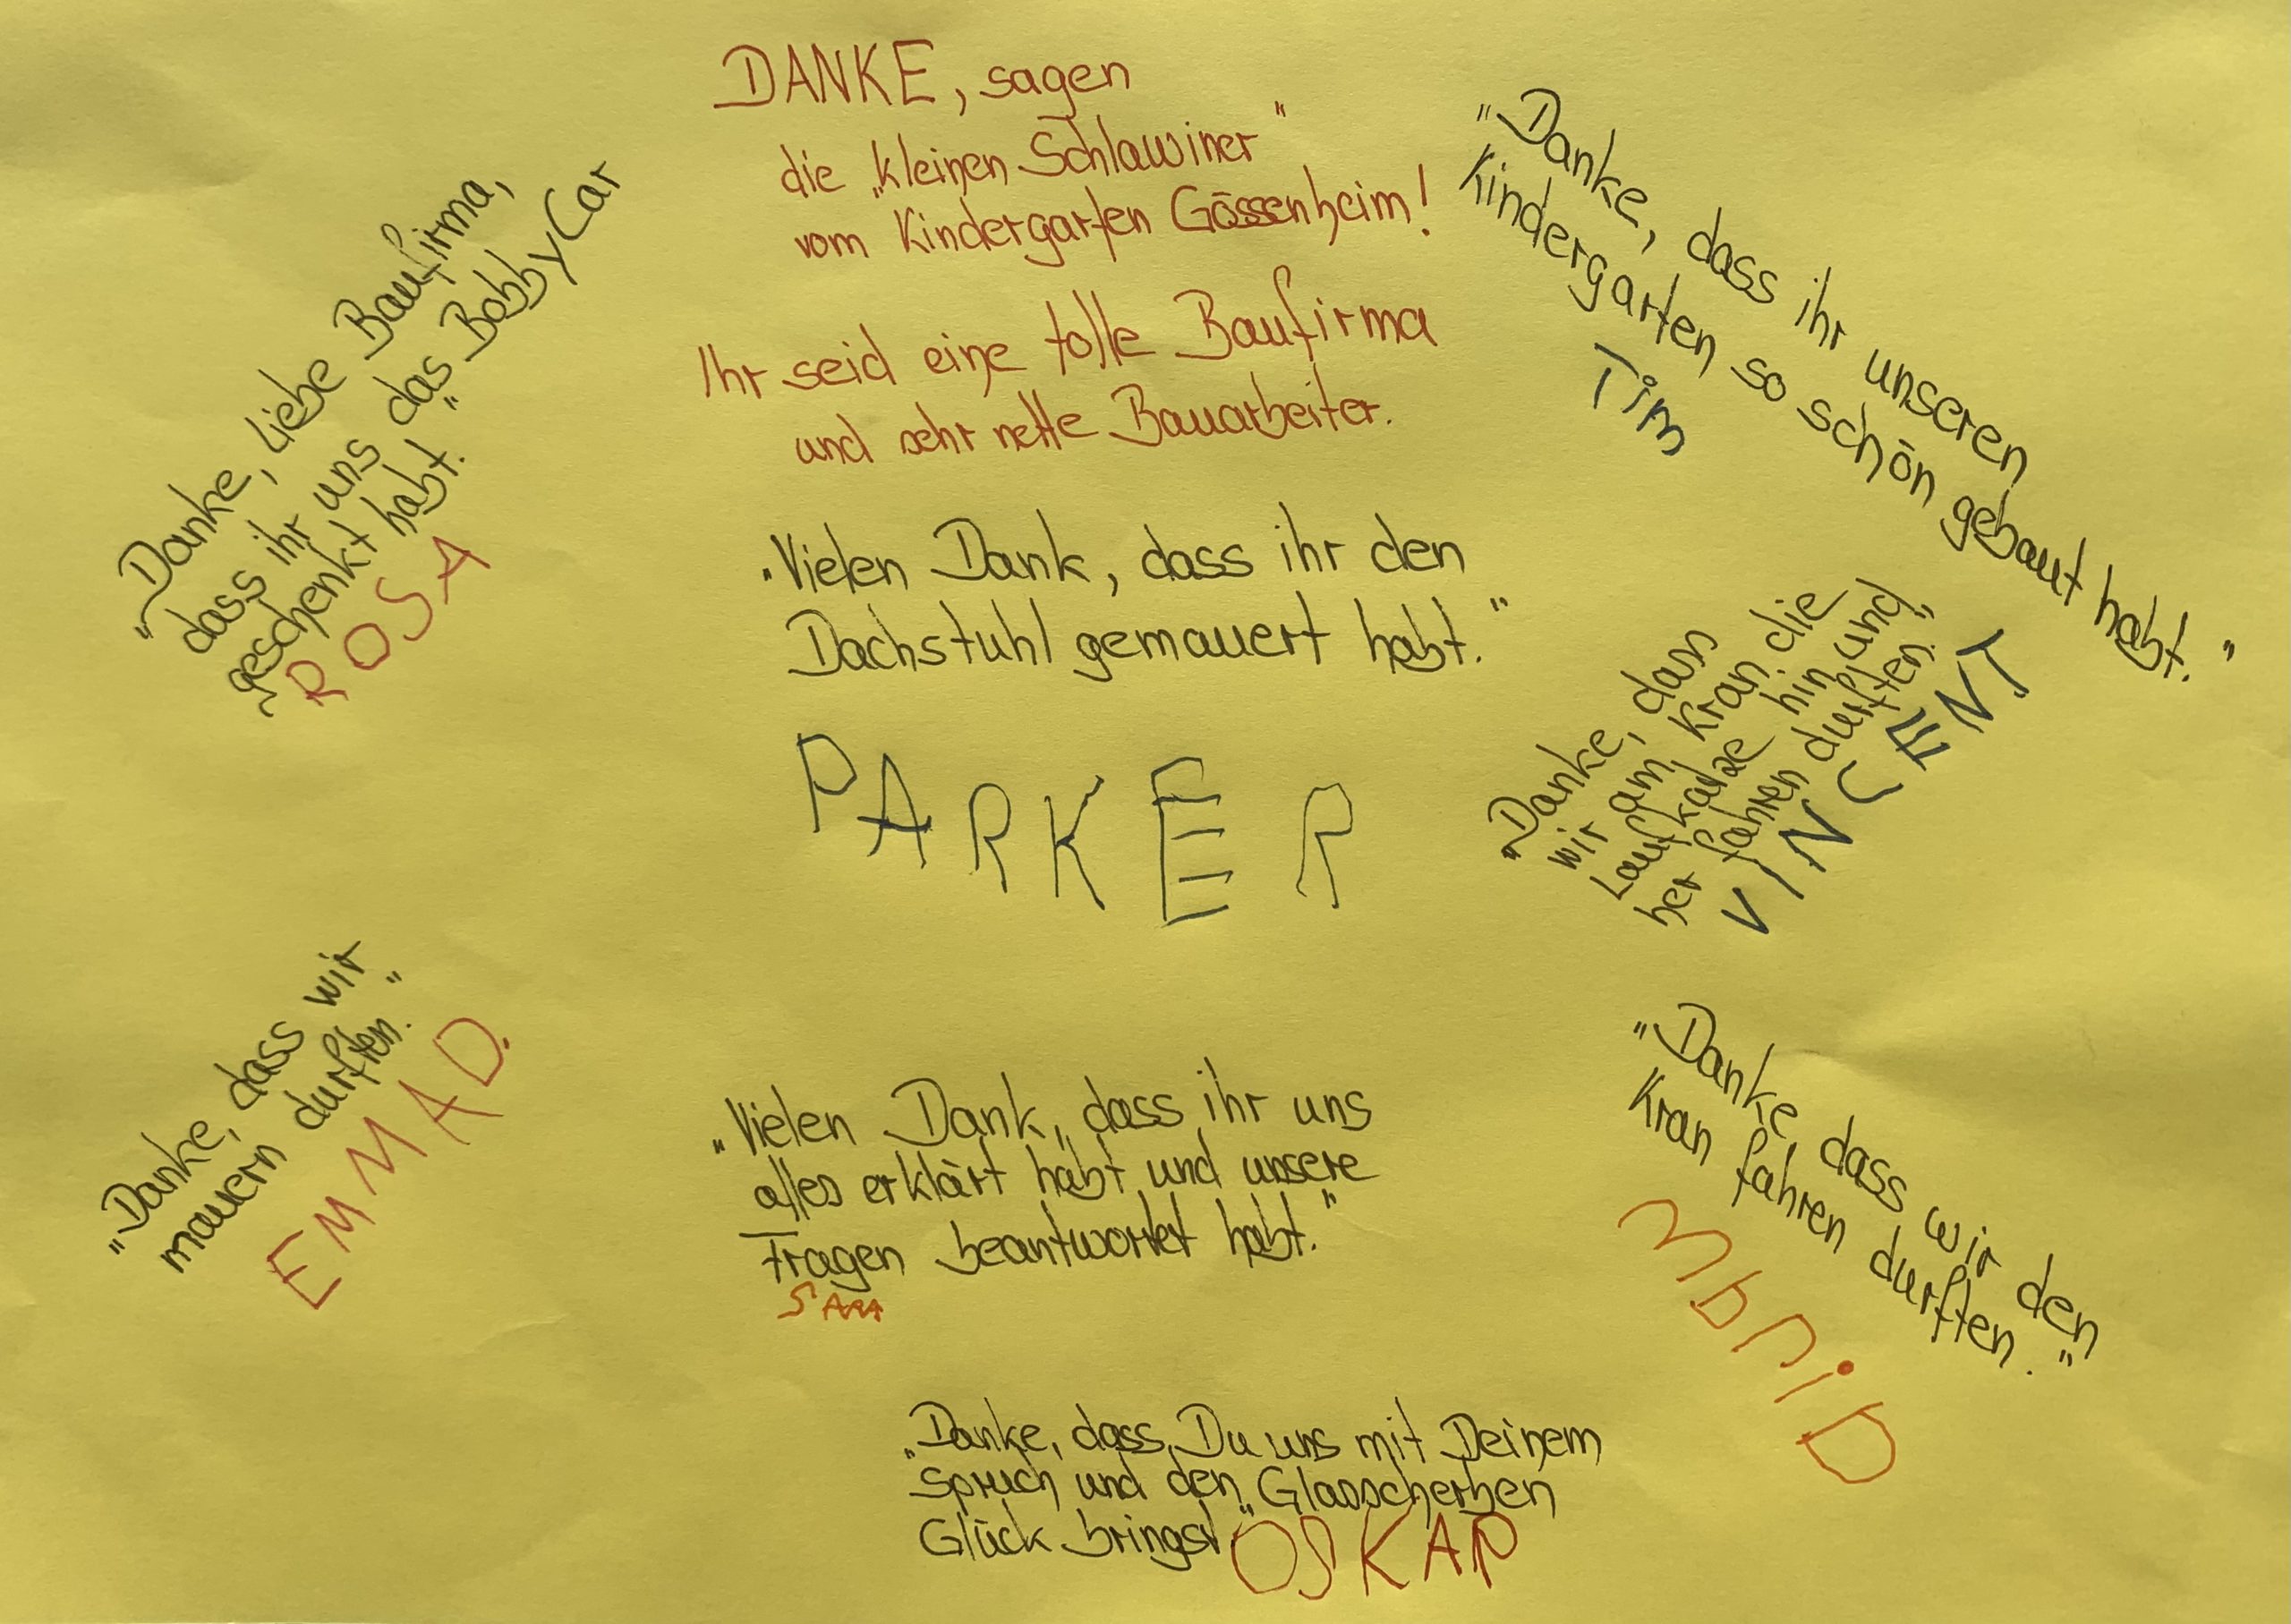 DANKE, sagen
die „kleinen Schlawiner"
vom Kindergarten Gössenheim!
Ihr seid eine tolle Baufirma
und sehr nette Bauarbeiter.
„Danke, liebe Baufirma,
dass ihr uns das BobbyCar
geschenkt habt."
ROSA
"Danke, dass ihr unseren
Kindergarten so schön gebaut habt."
Tim
"Vielen Dank, dass ihr den
Dachstuhl gemauert habt."
PARKER
„Danke, dass
wir am Kran die
Laufkatze hin und
her fahren durften."
VINCENT
„Danke, dass wir
mauern durften."
EMMA D.
„Vielen Dank, dass ihr uns
alles erklärt habt und unsere
Fragen beantwortet habt."
"Danke, dass wir den
Kran fahren durften."
„Danke, dass Du uns mit Deinem
Spruch und den Glasscherben
Glück bringst"
OSKAR